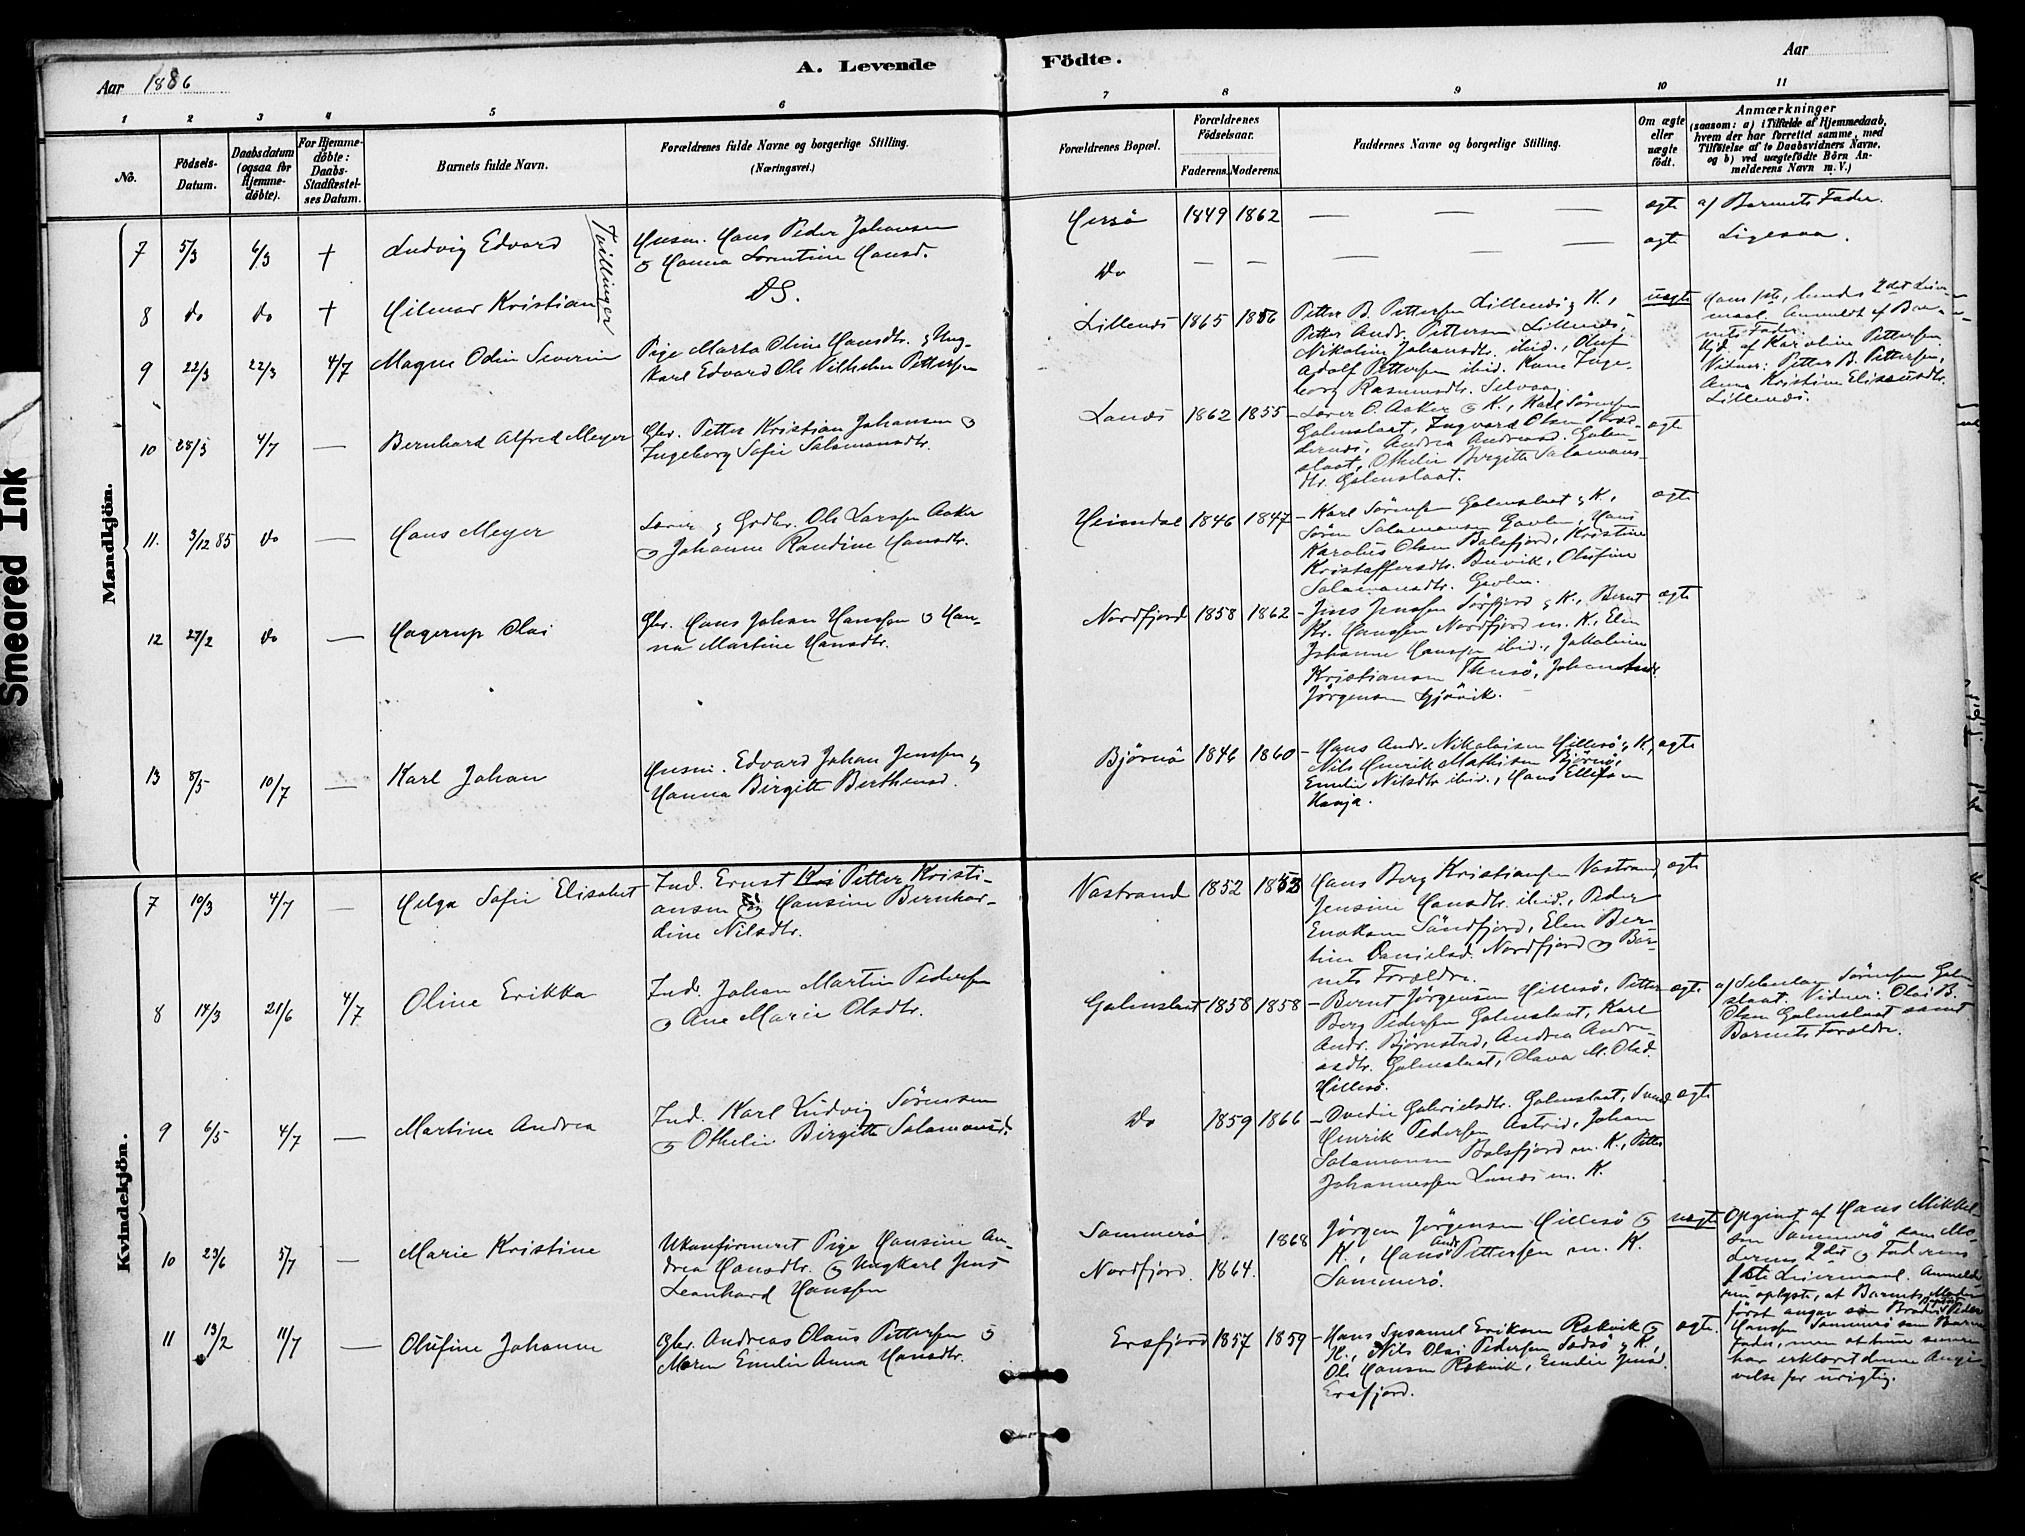 Smeared Ink
Aar 1886
A. Levende
Födte.
Aar
1 2 3 4 5 6 7 8 9 10 11
No.
Födsels-
Datum.
Daabsdatum
(ogsaa for
Hjemme-
døbte).
For Hjemme-
døbte:
Daabs-
Stadfæstel-
ses Datum.
Barnets fulde Navn.
Forældrenes fulde Navne og borgerlige Stilling.
(Næringsvei.)
Forældrenes Bopæl.
Forældrenes
Födselsaar.
Faderens. Moderens.
Faddernes Navne og borgerlige Stilling.
Om ægte
eller
uægte
født.
Anmærkninger
(saasom: a) i Tilfælde af Hjemmedaab,
hvem der har forrettet samme, med
Tilföielse af to Daabsvidners Navne.
og b) ved uægtefödte Börn An-
melderens Navn m. V.)
Mandkjön.
7 5/3 6/3 + Ludvig Edvard
Tvillinger
Husm. Hans Peder Johansen
og Hanna Sorentine Hansd.
Hersö 1849 1862 — — — ægte af Barnets Fader.
8 do do + Hilmar Kristian
DS.
Do — — — — — ægte Ligesaa.
9 22/3 22/3 4/7 Magnus Odin Severin
Pige Marta Oline Hansdtr. & Ung-
karl Edvard Ole Vilhelm Pettersen
Lillenes 1865 1856
Petter B. Pettersen Lillenes & K.,
Petter Andr. Pettersen Lillenes,
Nikoline Johansdtr. ibid., Oluf
Adolf Pettersen ibid. Kone Inge-
borg Rasmusdtr. Selvaag.
uægte
Hans 1ste, hendes 2det Leier-
maal. Anmeldt af Bar-
nets Fader.
Hjd. af Karoline Pettersen
Vidner: Petter B. Pettersen,
Anna Kristine Eliseusdtr.
Lillenes.
10 28/3 4/7 — Bernhard Alfred Meyer
Gbr. Petter Kristian Johansen og
Ingeborg Sofie Salamonsdtr.
Lanes 1862 1855
Lærer O. Aaker og K., Karl Sörensen
Galenslaat, Ingvard Olsen
Andrea Andreasd. Galen-
slaat, Othelie Birgitte Salamons-
dtr. Galenslaat.
ægte
11. 3/12 85 do — Hans Meyer
Lærer & Grdbr. Ole Larssen Aaker
og Johanne Randine Hansdtr.
Heimdal 1846 1847
Karl Sörensen Galenslaat & K.,
Sören Salamonsen Gavlen, Hans
Karolius Olsen Balsfjord, Kristine
Kristoffersdtr. Buvik, Olufine
Salamonsdtr. Gavlen.
ægte
12 27/2 do — Hagerup Olai
Gbr. Hans Johan Hanssen og Han-
na Martine Hansdtr.
Nordfjord 1858 1862
Jens Jenssen Sörfjord & K., Bernt
Kr. Hanssen Nordfjord m. K., Elen
Johanne Hanssen ibid., Jakobine
Kristiansen Tussö, Johan Andr.
Jörgensen Gjövik.
ægte
13 8/5 10/7 — Karl Johan
Husm. Edvard Johan Jenssen &
Hanna Birgitte Berthensd.
Bjørnö 1846 1860
Hans Andr. Nikolaisen Hillesö & K.,
Nils Henrik Mathisen Bjørnö,
Emelie Nilsdtr. ibid., Hans Ellefsen
Haaja.
ægte
Kvindekjön.
7 10/3 4/7 — Helga Sofie Elisabet
Ind. Ernst Kri Petter Kristi-
ansen og Hansine Bernhar-
dine Nilsdtr.
Vastrand 1852 1853
Hans Berg Kristiansen Vastrand
Jensine Hansdtr. ibid., Peder
Enoksen Sandfjord, Elen Ber-
tine Danielsd. Nordfjord og Bar-
nets Forældre.
ægte
8 14/3 21/6 4/7 Oline Erikka
Ind. Johan Martin Pedersen
og Ane Marie Olsdtr.
Galenslaat 1858 1858
Bernt Jørgensen Hillesö, Petter
Berg Pedersen Galenslaat, Karl
Andr. Bjørnstad, Andrea Andre-
asdtr. Galenslaat, Olava M. Olsd.
Hillesö.
ægte
af Sörensen Galen-
slaat. Vidner: Olai B.
Olsen Galenslaat samt
Barnets Forældre.
9 6/5 4/7 — Martine Andrea
Ind. Karl Ludvig Sörensen
og Othelie Birgitte Salamonsd.
Do 1859 1866
Ovedie Gabrielsdtr. Galenslaat,
Henrik Pedersen Astrid, Johan
Salamonsen Balsfjord m. K., Petter
Johannessen Lanes m. K.
ægte
10 23/6 5/7 — Marie Kristine
Ukonfirmeret Pige Hansine An-
drea Hansdtr. og Ungkarl Jens
Leonhard Hanssen
Sommerö 1868
Nordfjord. 1864.
Jörgen Jörgensen Hillesö og
K., Hans Andr. Pettersen m. K.
Sommerö.
uægte
Opgivet af Hans Mikkel-
sen Sommerö som Mo-
derens 2det og Faderens
1ste Leiermaal. Anmelde-
ren oplyste, at Barnets Moder
först angav sin Broder Peder
Hanssen Sommerö som Barnets
Fader, men at hun senere
har erklæret denne Angi-
velse for urigtig.
11 13/2 11/7 — Olufine Johanne
Gbr. Andreas Olaus Pettersen og
Maren Emelie Anna Hansdtr.
Ersfjord 1857 1859
Hans Susamel Eriksen Rekvik og
K., Nils Olai Pedersen Sadsö & K.,
Ole Hansen Rekvik, Emelie Jensd.
Ersfjord.
ægte.